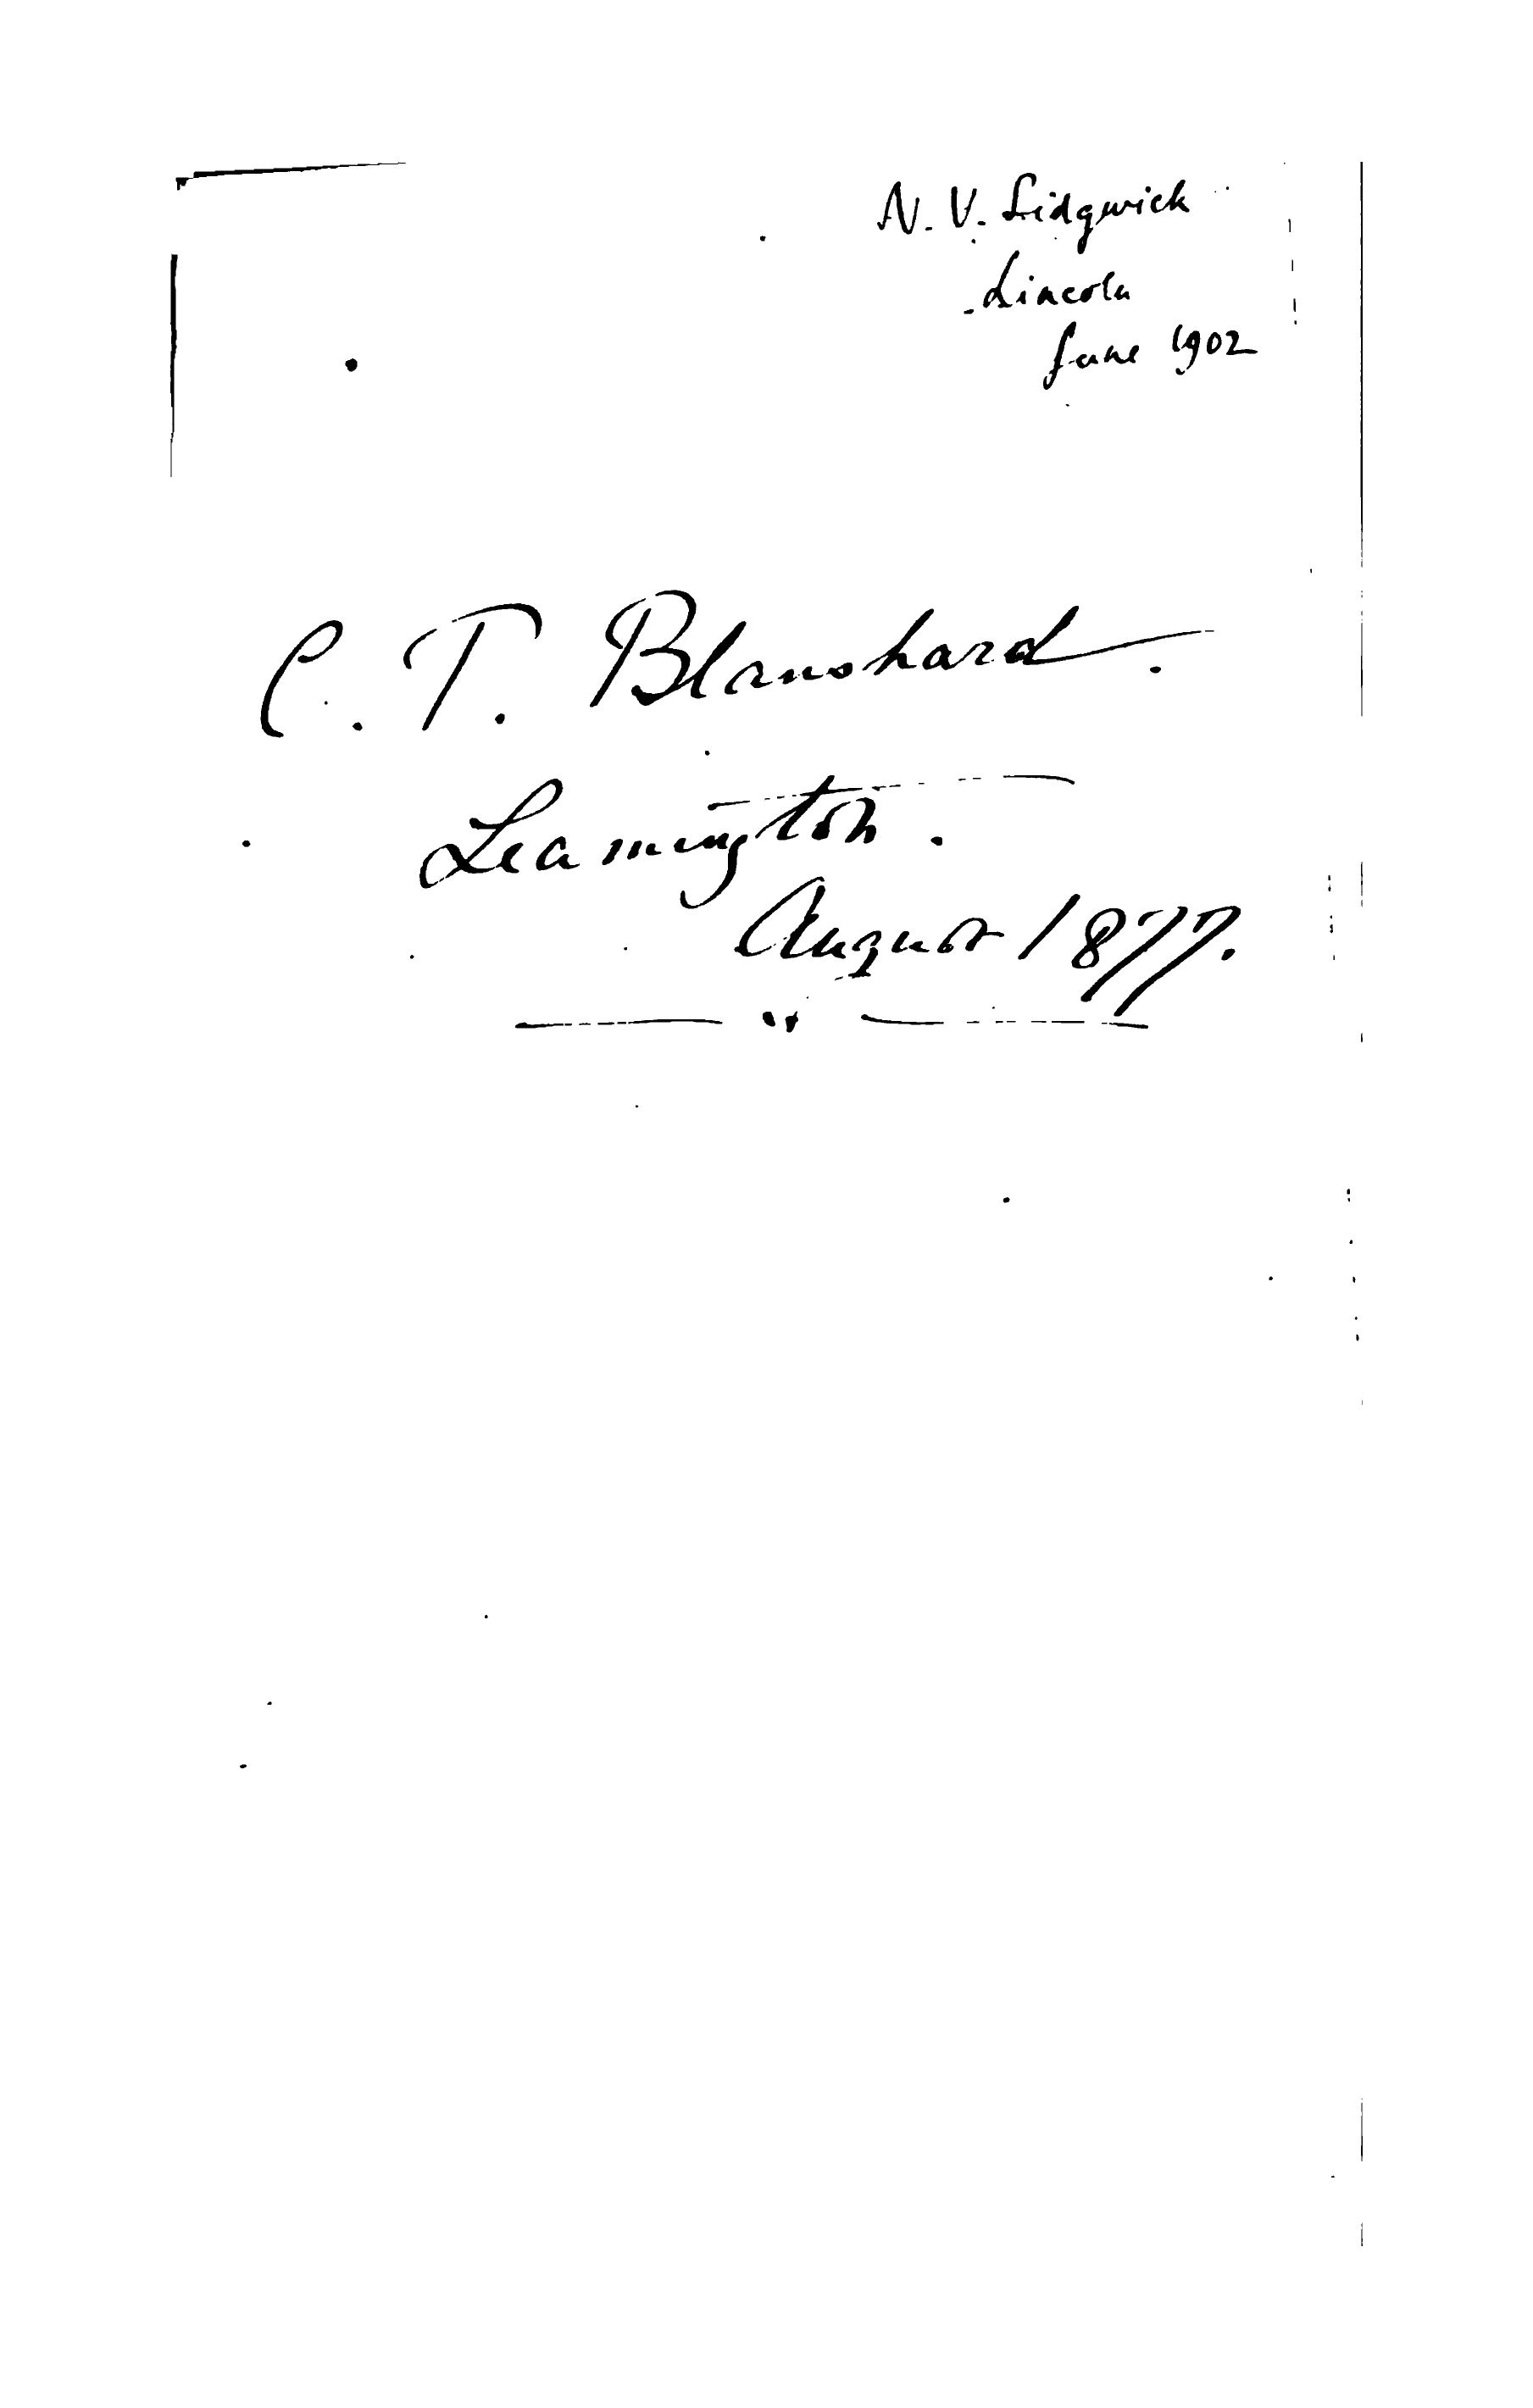 N. V. Sidgwick
Lincoln
June 1902
C. T. Blanshard.
Leamington.
August 1877.